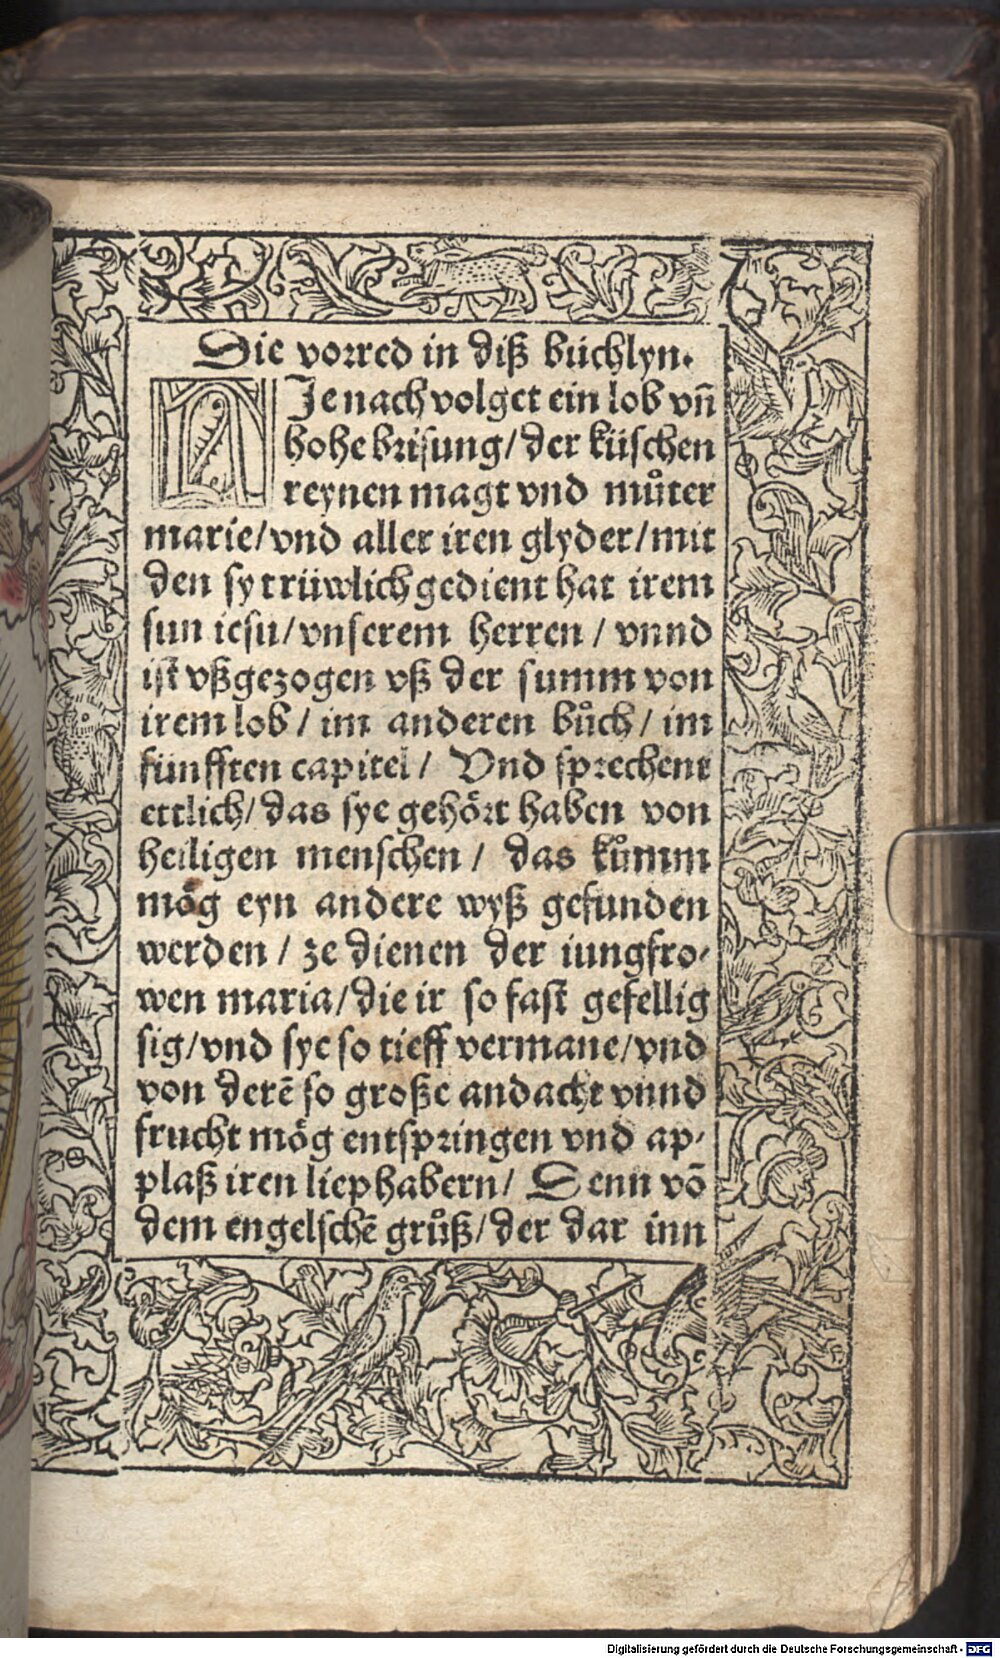 Die vorred in diß büchlyn.
HIe nach volget ein lob vn̄
hohe brisung/ der küschen
reynen magt vnd můter
marie/ vnd aller iren glyder/ mit
den sy trüwlich gedient hat irem
sun iesu/ vnserem herren / vnnd
ist vßgezogen vß der summ von
irem lob / im anderen bůch/ im
fünfften capitel/ Vnd sprechent
ettlich/ das sye gehört haben von
heiligen menschen / das kům̄m
mög eyn andere wyß gefunden
werden / ze dienen der iungfro⸗
wen maria/ die ir so fast gefellig
sig/ vnd sye so tieff vermane/ vnd
von derē so große andacht vnnd
frucht mög entspringen vnd ap⸗
plaß iren liephabern/ Denn vō
dem engelschē grůß/ der dar inn
Digitalisierung gefördert durch die Deutsche Forschungsgemeinschaft - DFG